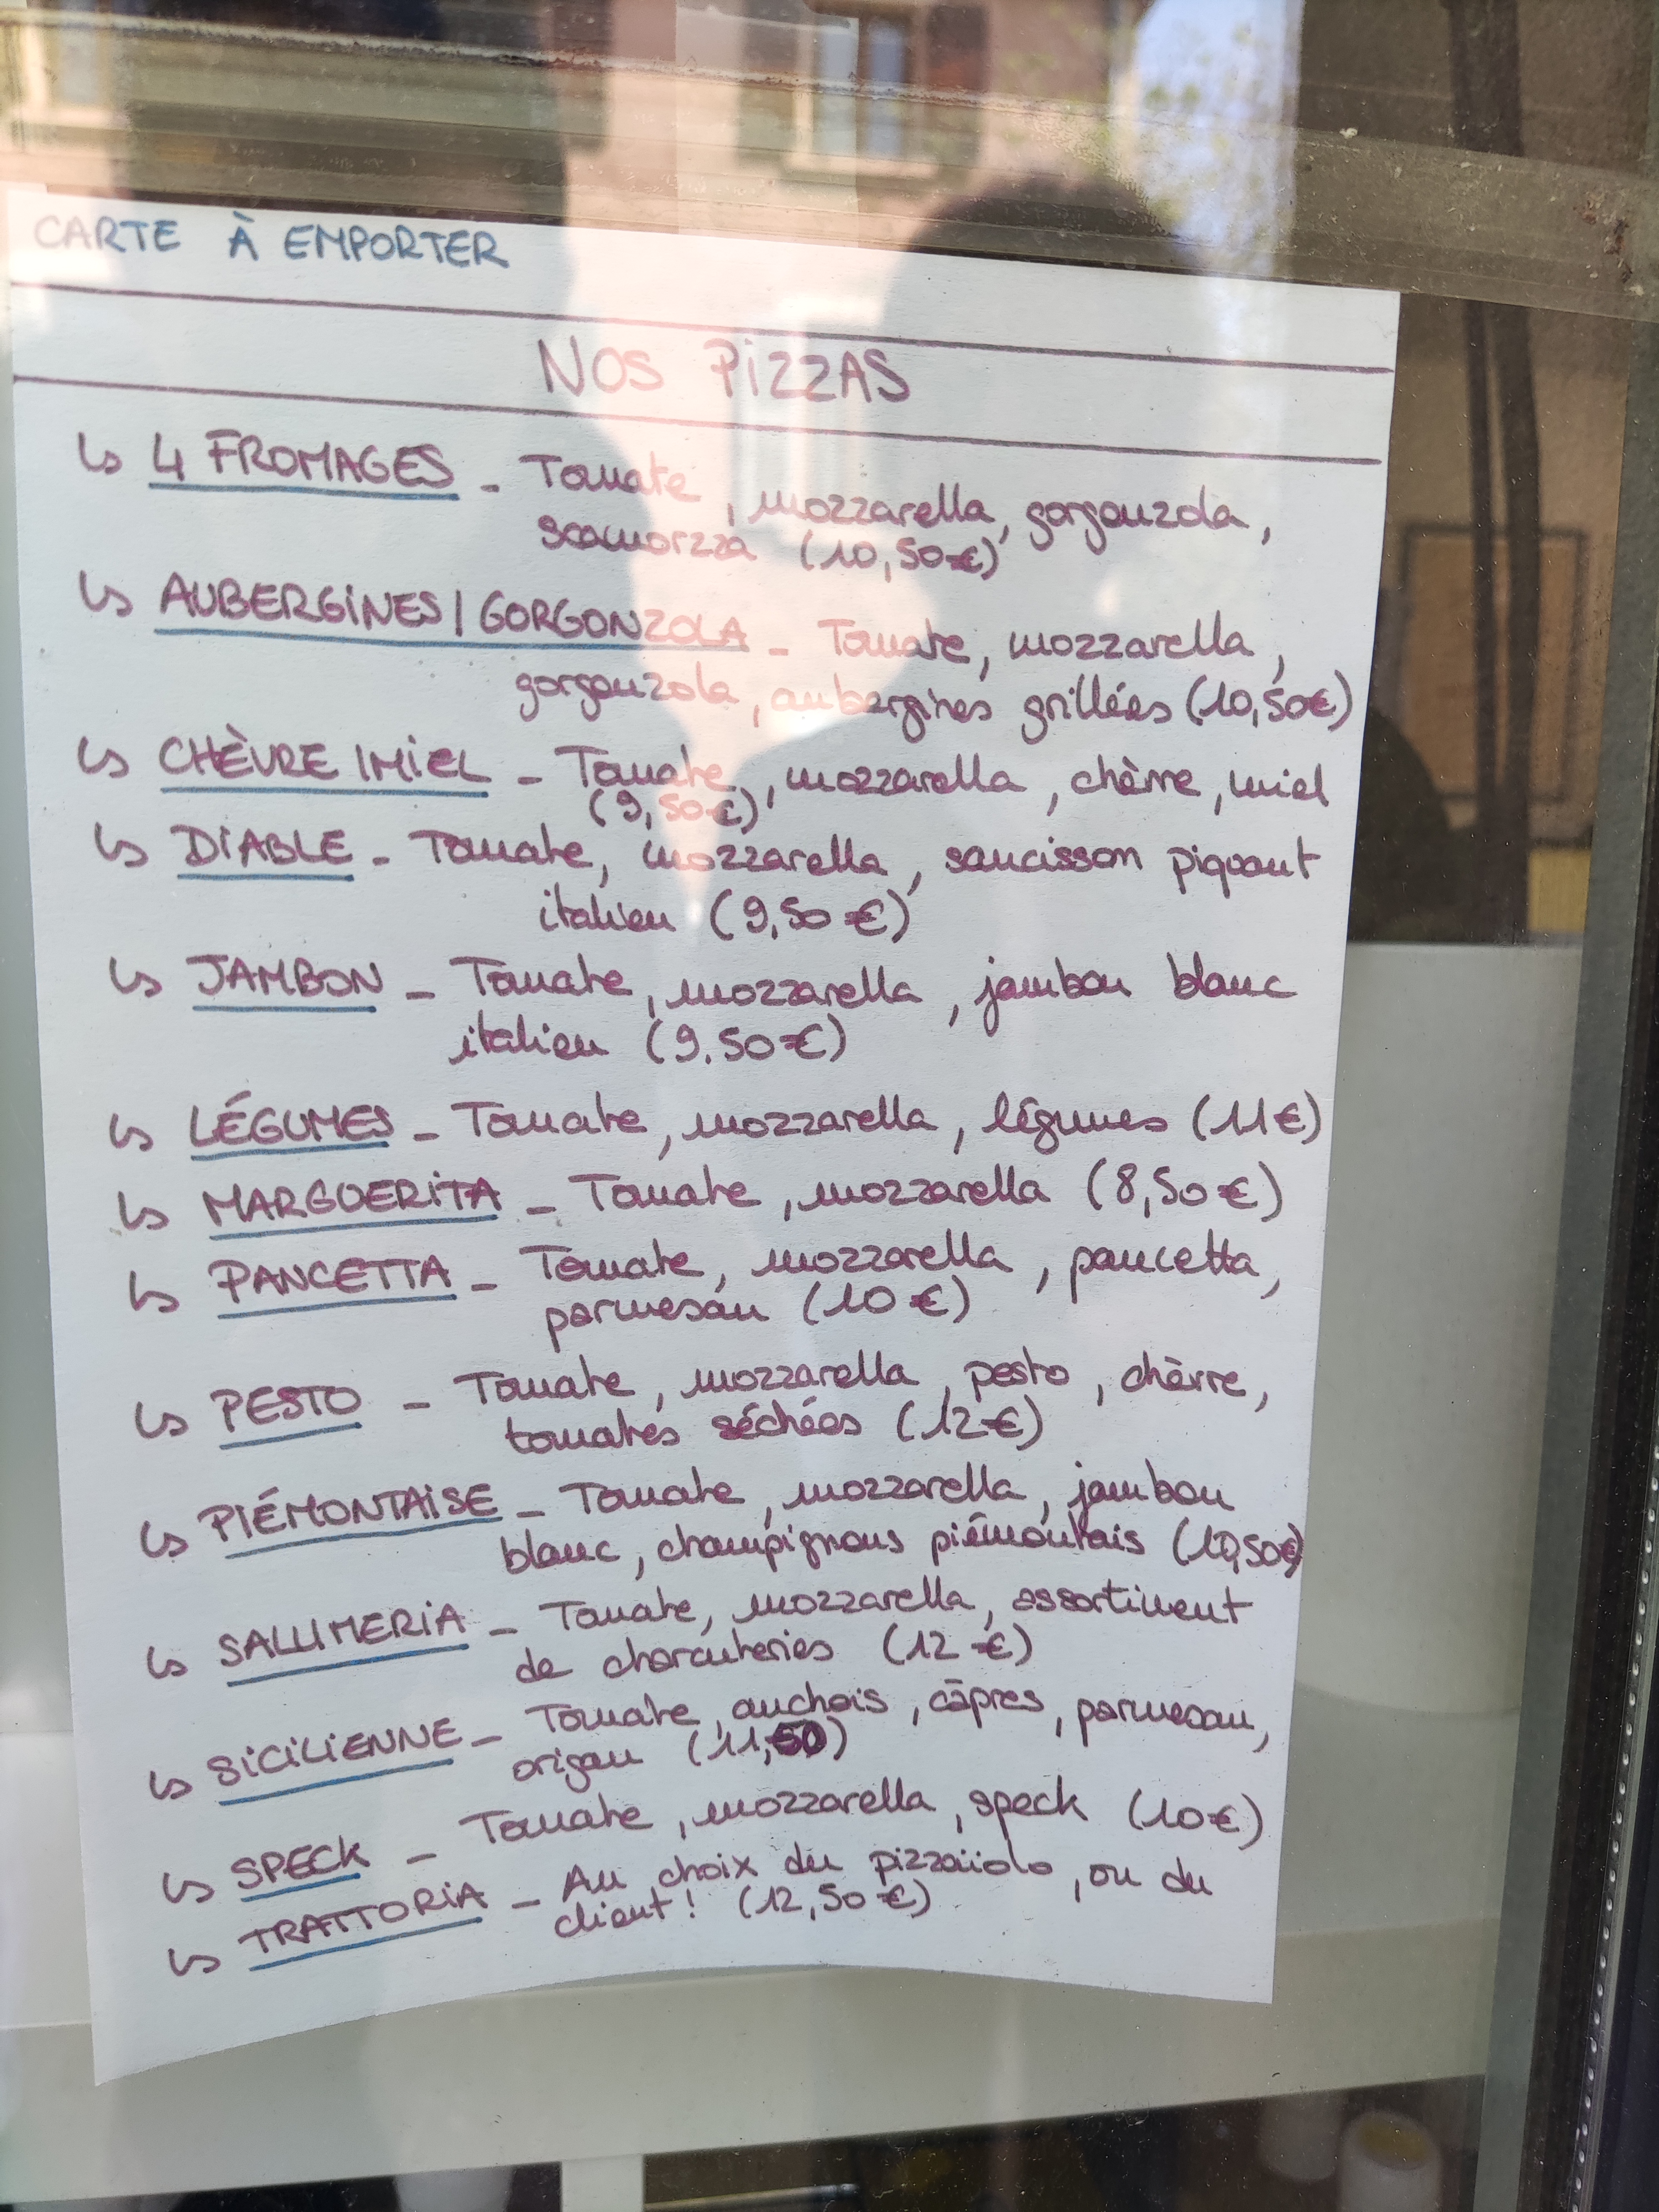 CARTE À EMPORTER
NOS PIZZAS
↳ 4 FROMAGES - Tomate, mozzarella, gorgonzola,
scamorzza (10,50€)
↳ AUBERGINES / GORGONZOLA - Tomate, mozzarella,
gorgonzola, aubergines grillées (10,50€)
↳ CHÈVRE / MIEL - Tomate, mozzarella, chèvre, miel
(9,50€)
↳ DIABLE - Tomate, mozzarella, saucisson piquant
italien (9,50€)
↳ JAMBON - Tomate, mozzarella, jambon blanc
italien (9.50€)
↳ LÉGUMES - Tomate, mozzarella, légumes (11€)
↳ MARGUERITA - Tomate, mozzarella (8,50€)
↳ PANCETTA - Tomate, mozzarella, pancetta,
parmesan (10€)
↳ PESTO - Tomate, mozzarella, pesto, chèvre,
tomates séchées (12€)
↳ PIÉMONTAISE - Tomate, mozzarella, jambon
blanc, champignons piémontais (10,50€)
↳ SALUMERIA - Tomate, mozzarella, assortiment
de charcuteries (12€)
↳ SICILIENNE - Tomate, anchois, câpres, parmesan,
origan (11,50)
↳ SPECK - Tomate, mozzarella, speck (10€)
↳ TRATTORIA - Au choix du pizzaiiolo, ou du
client ! (12,50€)